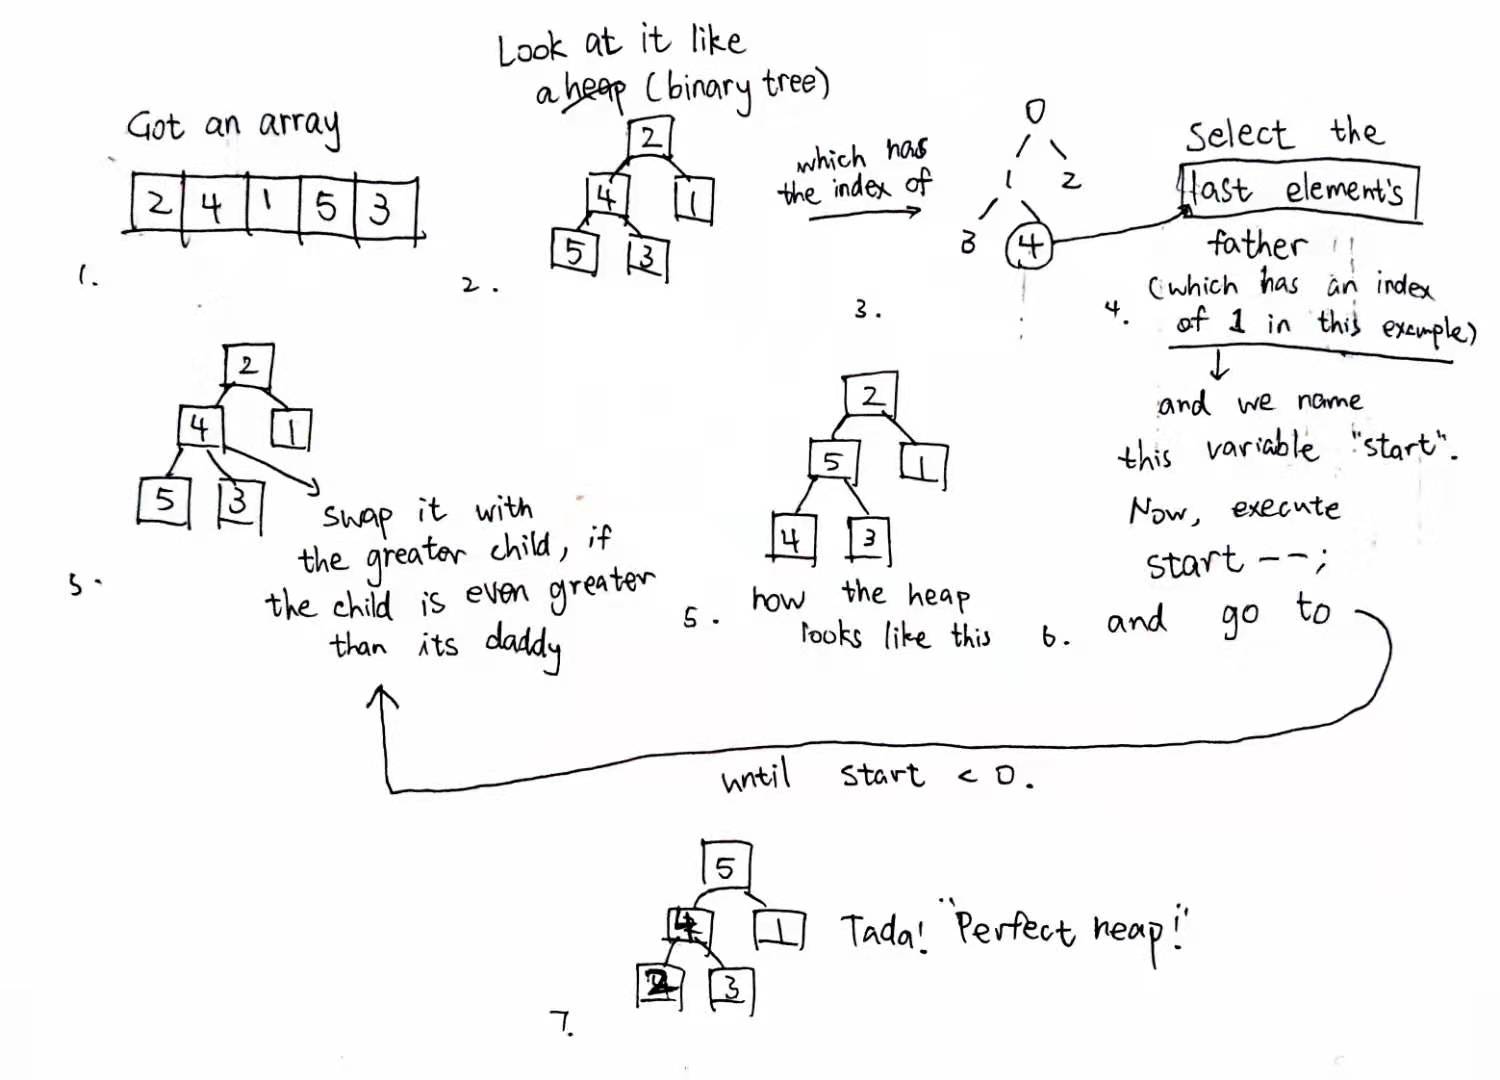 Got an array
2 4 1 5 3
1.
Look at it like
a heap (binary tree)
2
4 1
5 3
2.
which has
the index of
0
1 2
3 4
3.
Select the
last element's
father
(which has an index
of 1 in this example)
4.
and we name
this variable "start".
Now, execute
start --;
6. and go to
2
4 1
5 3
swap it with
the greater child, if
the child is even greater
than its daddy
5.
2
5 1
4 3
5. now the heap
looks like this
until start < 0.
5
4 1
2 3
7.
Tada! "Perfect heap!"